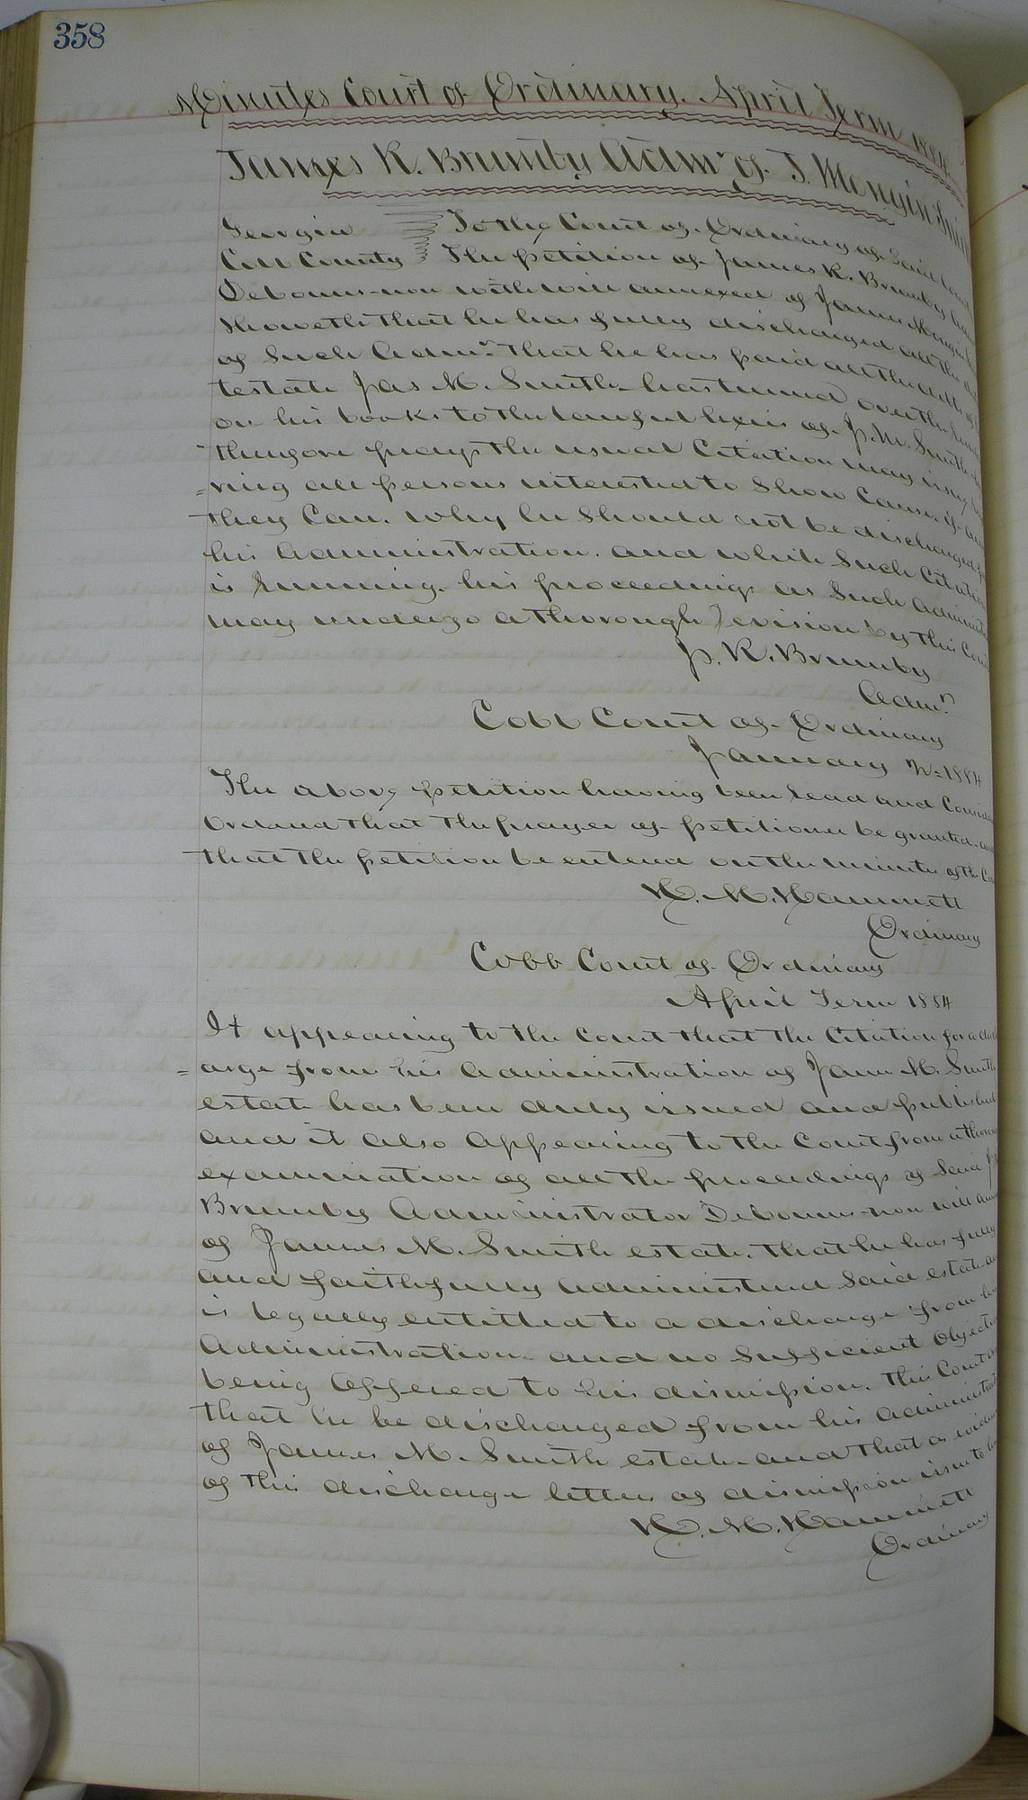 358
Minutes Court of Ordinary. April Term 1884
James R. Brumby Admr of J. Mongin Smith
Georgia To the Court of Ordinary of Said
Cobb County The petition of James R. Brumby
Debonus-non with will annexed of James Mongin
Showeth that he has fully discharged all the
of Such Admr. that he has paid all the debts of
testate Jas M. Smith has turned over the
on his books to the lawful heirs of J. M. Smith
therefore prays the usual Citation may issue
=ring all persons interested to Show Cause, if any
they Can, why he Should not be discharged
his Administration, and while Such Citation
is running, his proceedings as Such Administ
may undergo a thorough revision by this Court
J. R. Brumby
Admr
Cobb Court of Ordinary
January 1884
The above petition having been read and Consid
Ordered that the prayer of petitioner be granted, and
that the petition be entered on the minutes of the Co
H. M. Hammett
Ordinary
Cobb Court of Ordinary
April Term 1884
It appearing to the Court that the Citation for a disch
=arge from his Administration of James M. Smith
estate has been duly issued and published
and it also appearing to the Court from a thorough
examination of all the proceedings of Said J R
Brumby Administrator Debonus-non will annex
of James M. Smith estate, that he has fully
and faithfully administered Said estate and
is legally entitled to a discharge from his
Administration and no Sufficient Objection
being Offered to his dismission. This Court
that he be discharged from his administration
of James M. Smith estate and that as evidence
of this discharge letters of dismission issue to him
H. M. Hammett
Ordinary